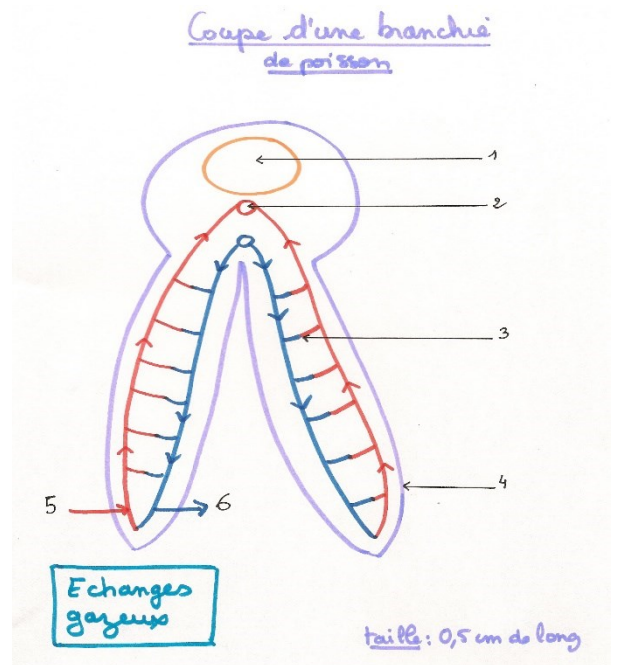 Coupe d'une branchie
de poisson
1
2
3
4
5
6
Echanges
gazeux
taille : 0,5 cm de long